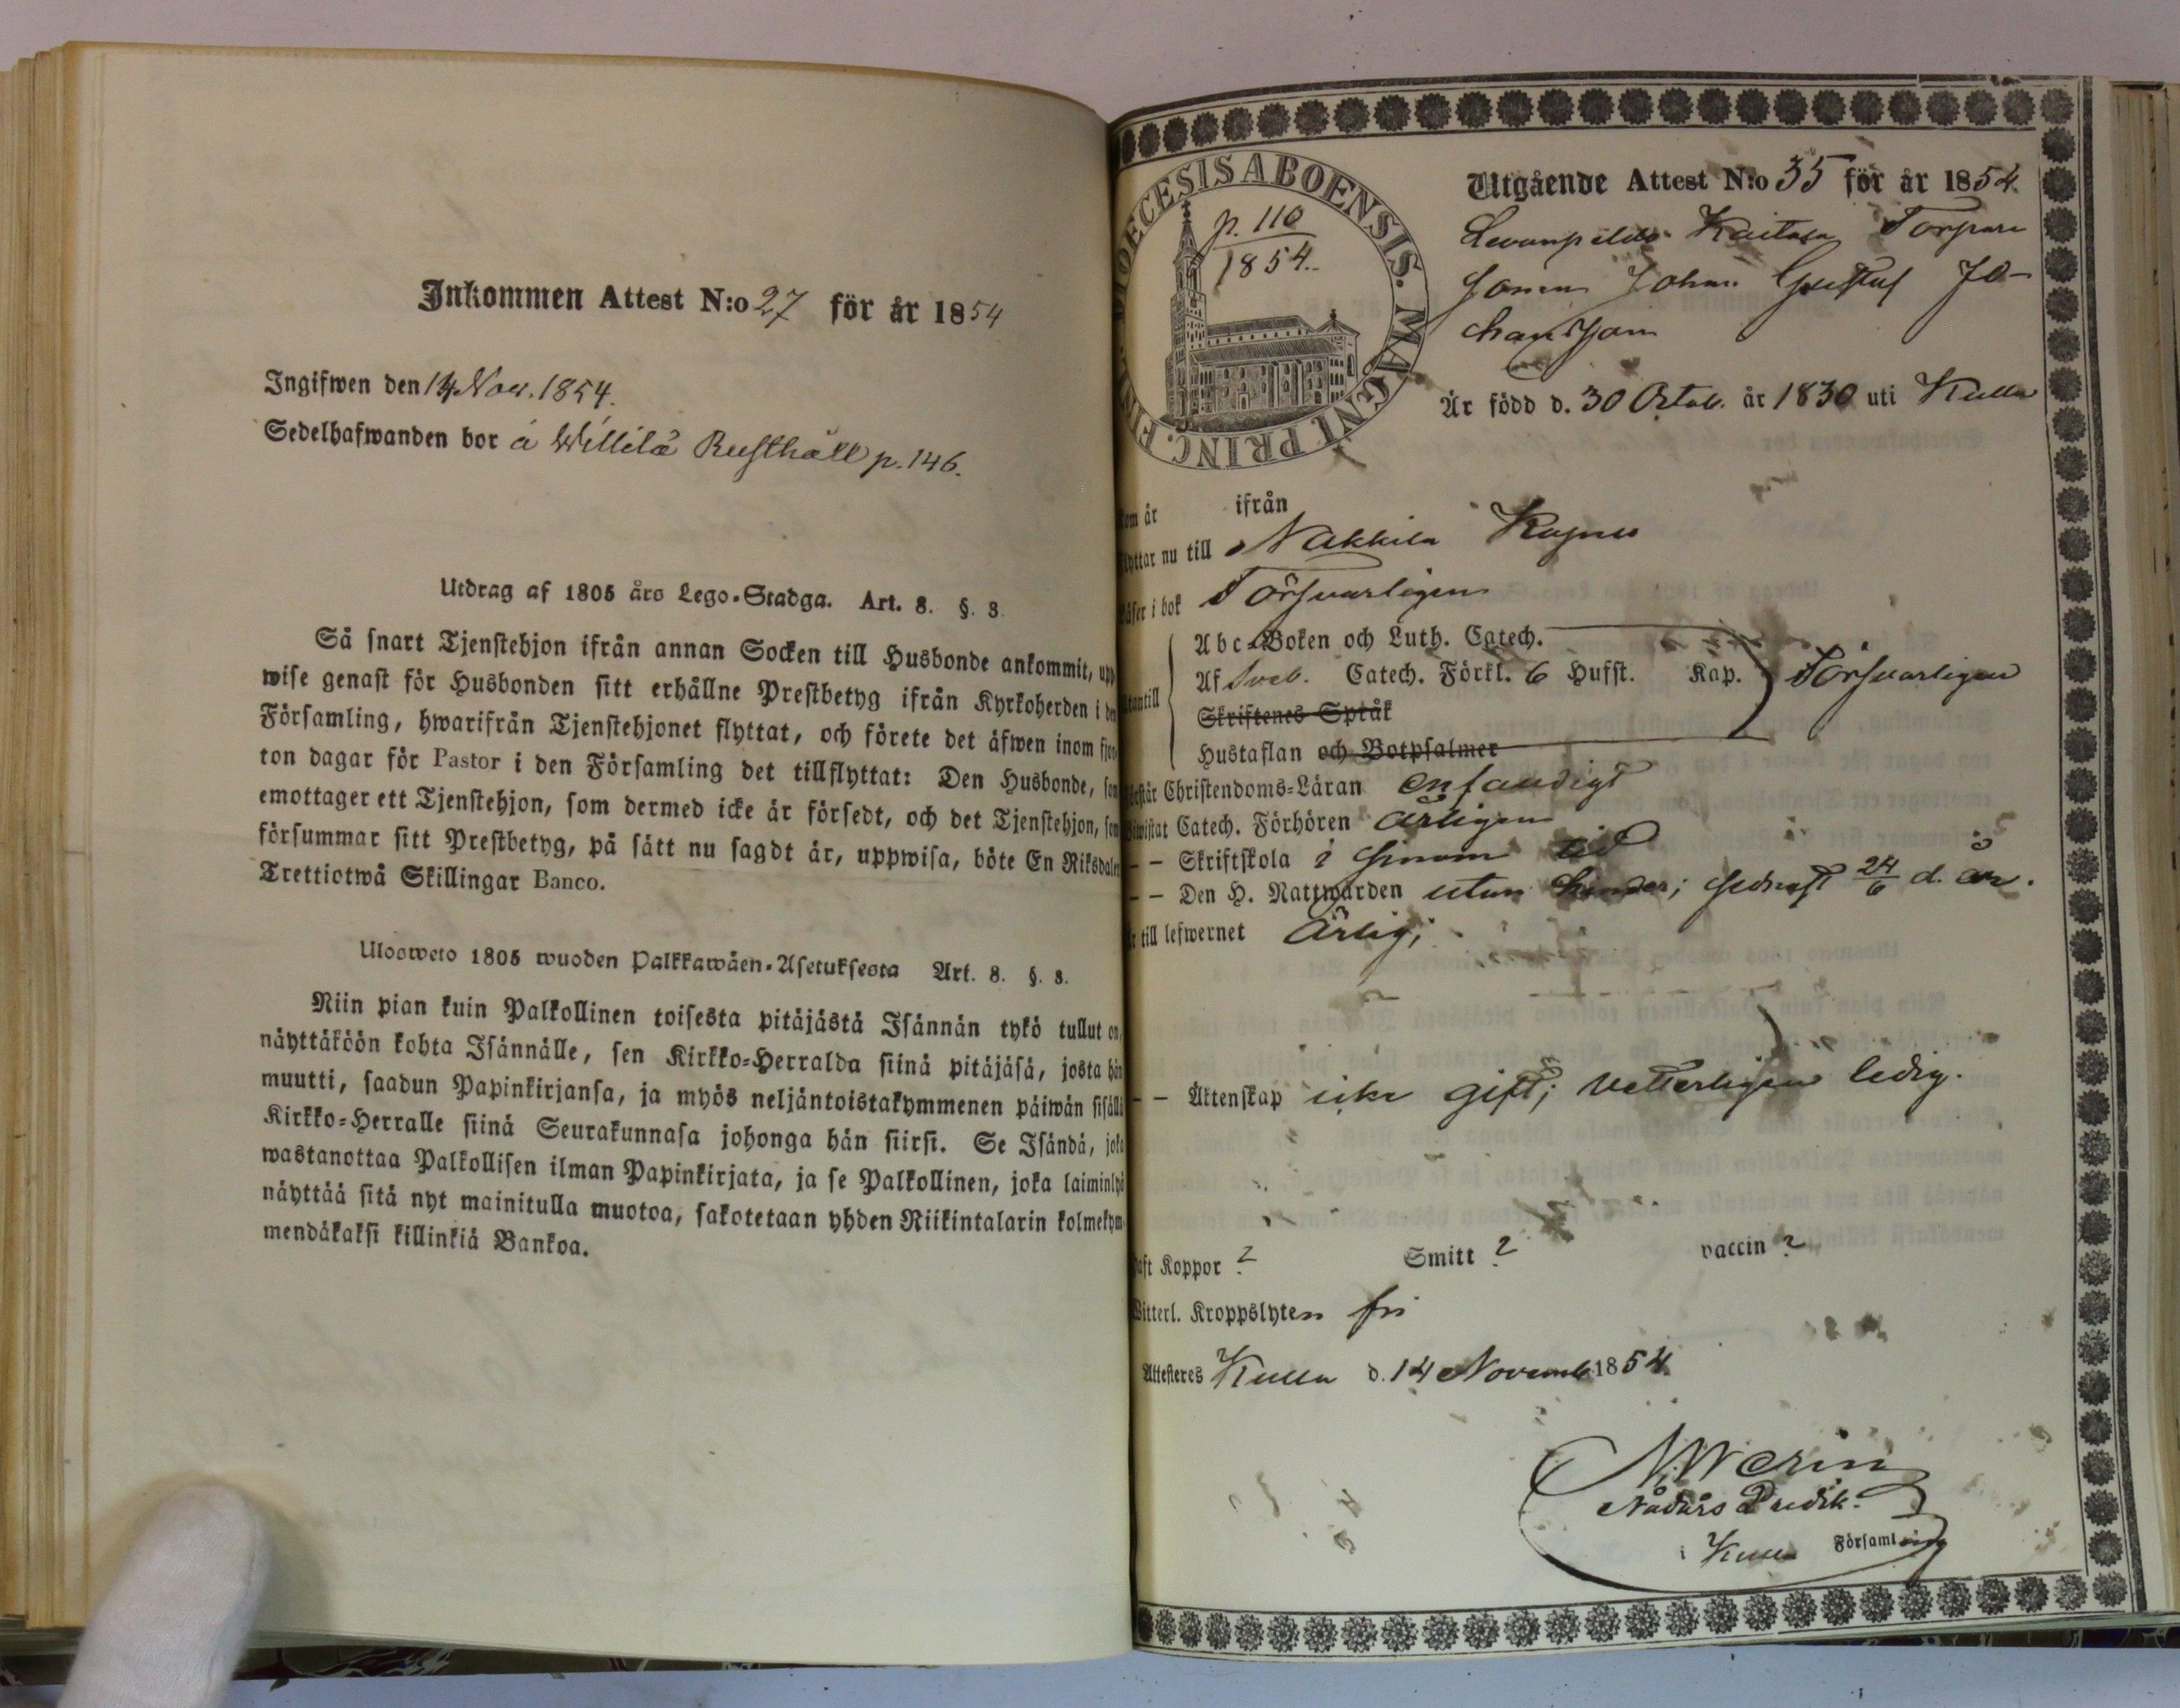 Inkommen Attest N:o 27 för år 1854
Ingifwen den 14 Nov. 1854.
Sedelhafwanden bor á Willilä Rusthåll p. 146.
Utdrag af 1805 års Lego-Stadga. Art. 8. §. 3.
Så snart Tjenstehjon ifrån annan Socken till Husbonde ankommit, upp
wise genast för Husbonden sitt erhållne Prestbetyg ifrån Kyrkoherden i den
Församling, hwarifrån Tjenstehjonet flyttat, och förete det äfwen inom fjor
ton dagar för Pastor i den Församling det tillflyttat: Den Husbonde, som
emottager ett Tjenstehjon, som dermed icke är försedt, och det Tjenstehjon, som
försummar sitt Prestbetyg, på sätt nu sagdt är, uppwisa, böte En Riksdaler
Trettiotwå Skillingar Banco.
Ulosweto 1805 wuoden Palkkawäen-Asetuksesta Art. 8. §. 3.
Niin pian kuin Palkollinen toisesta pitäjästä Isännän tykö tullut on,
näyttäköön kohta Isännälle, sen Kirkko-Herralda siinä pitäjäsä, josta hän
muutti, saadun Papinkirjansa, ja myös neljäntoistakymmenen päiwän sisällä
Kirkko-Herralle siinä Seurakunnasa johonga hän siirsi. Se Isändä, joka
wastanottaa Palkollisen ilman Papinkirjata, ja se Palkollinen, joka laiminlyö
näyttää sitä nyt mainitulla muotoa, sakotetaan yhden Riikintalarin kolmekym
mendäkaksi killinkiä Bankoa.
DIOECESIS ABOENSIS. MAGNI PRINC. FINL.
p. 110
1854.
Utgående Attest N:o 35 för år 1854.
Kaitara Torpare
sonen Johan Gustaf Jo-
hansson
Är född d. 30 Octob. år 1830 uti Kulla
om år ifrån
lyttar nu till Nakkila Kapell
äser i bok Försvarligen
Abc-Boken och Luth. Catech.
Af Sveb. Catech. Förkl. 6 Hufst. Kap. Försvarligen
utantill
Skriftenes Språk
Hustaflan och Botpsalmer
örstår Christendoms-Läran enfaldigt
iwistat Catech. Förhören årligen
– – Skriftskola i sinom tid
– – Den H. Nattwarden utan hinder; sednast 24/6 d. år.
r till lefwernet Ärlig;
– – Äktenskap icke gift; vetterligen ledig.
aft Koppor ? Smitt ? vaccin ?
Witterl. Kroppslyten fri
Attesteres Kulla d. 14 Novemb 1854.
Nådårs Predik.
i Kulla Församling